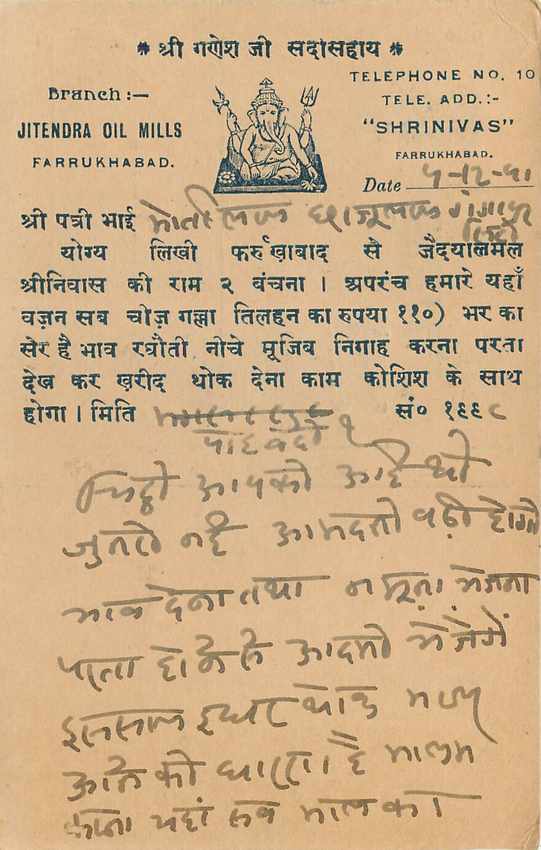 * श्री गणेश जी सदासहाय *
Branch :—
JITENDRA OIL MILLS
FARRUKHABAD.
TELEPHONE NO. 10
TELE. ADD. :-
"SHRINIVAS"
FARRUKHABAD.
Date 5-12-51
श्री पत्री भाई मोतीलाल
योग्य लिखी फर्रुखाबाद से जैदयालमल
श्रीनिवास की राम २ वंचना । अपरंच हमारे यहाँ
वज़न सब चीज़ गल्ला तिलहन का रुपया ११०) भर का
सेर है भाव रघौती नीचे मूजिब निगाह करना परता
देख कर ख़रीद थोक देना काम कोशिश के साथ
होगा । मिति सं० १९९८
चिट्ठी आपकी आई थी
नई आमदनी बढ़ी होगी
भाव देना तथा नमूना भेजना
पाता होने से आदमी भेजेंगे
इससाल इधर थोक
आने की धारणा है मालुम
यहां सब माल का